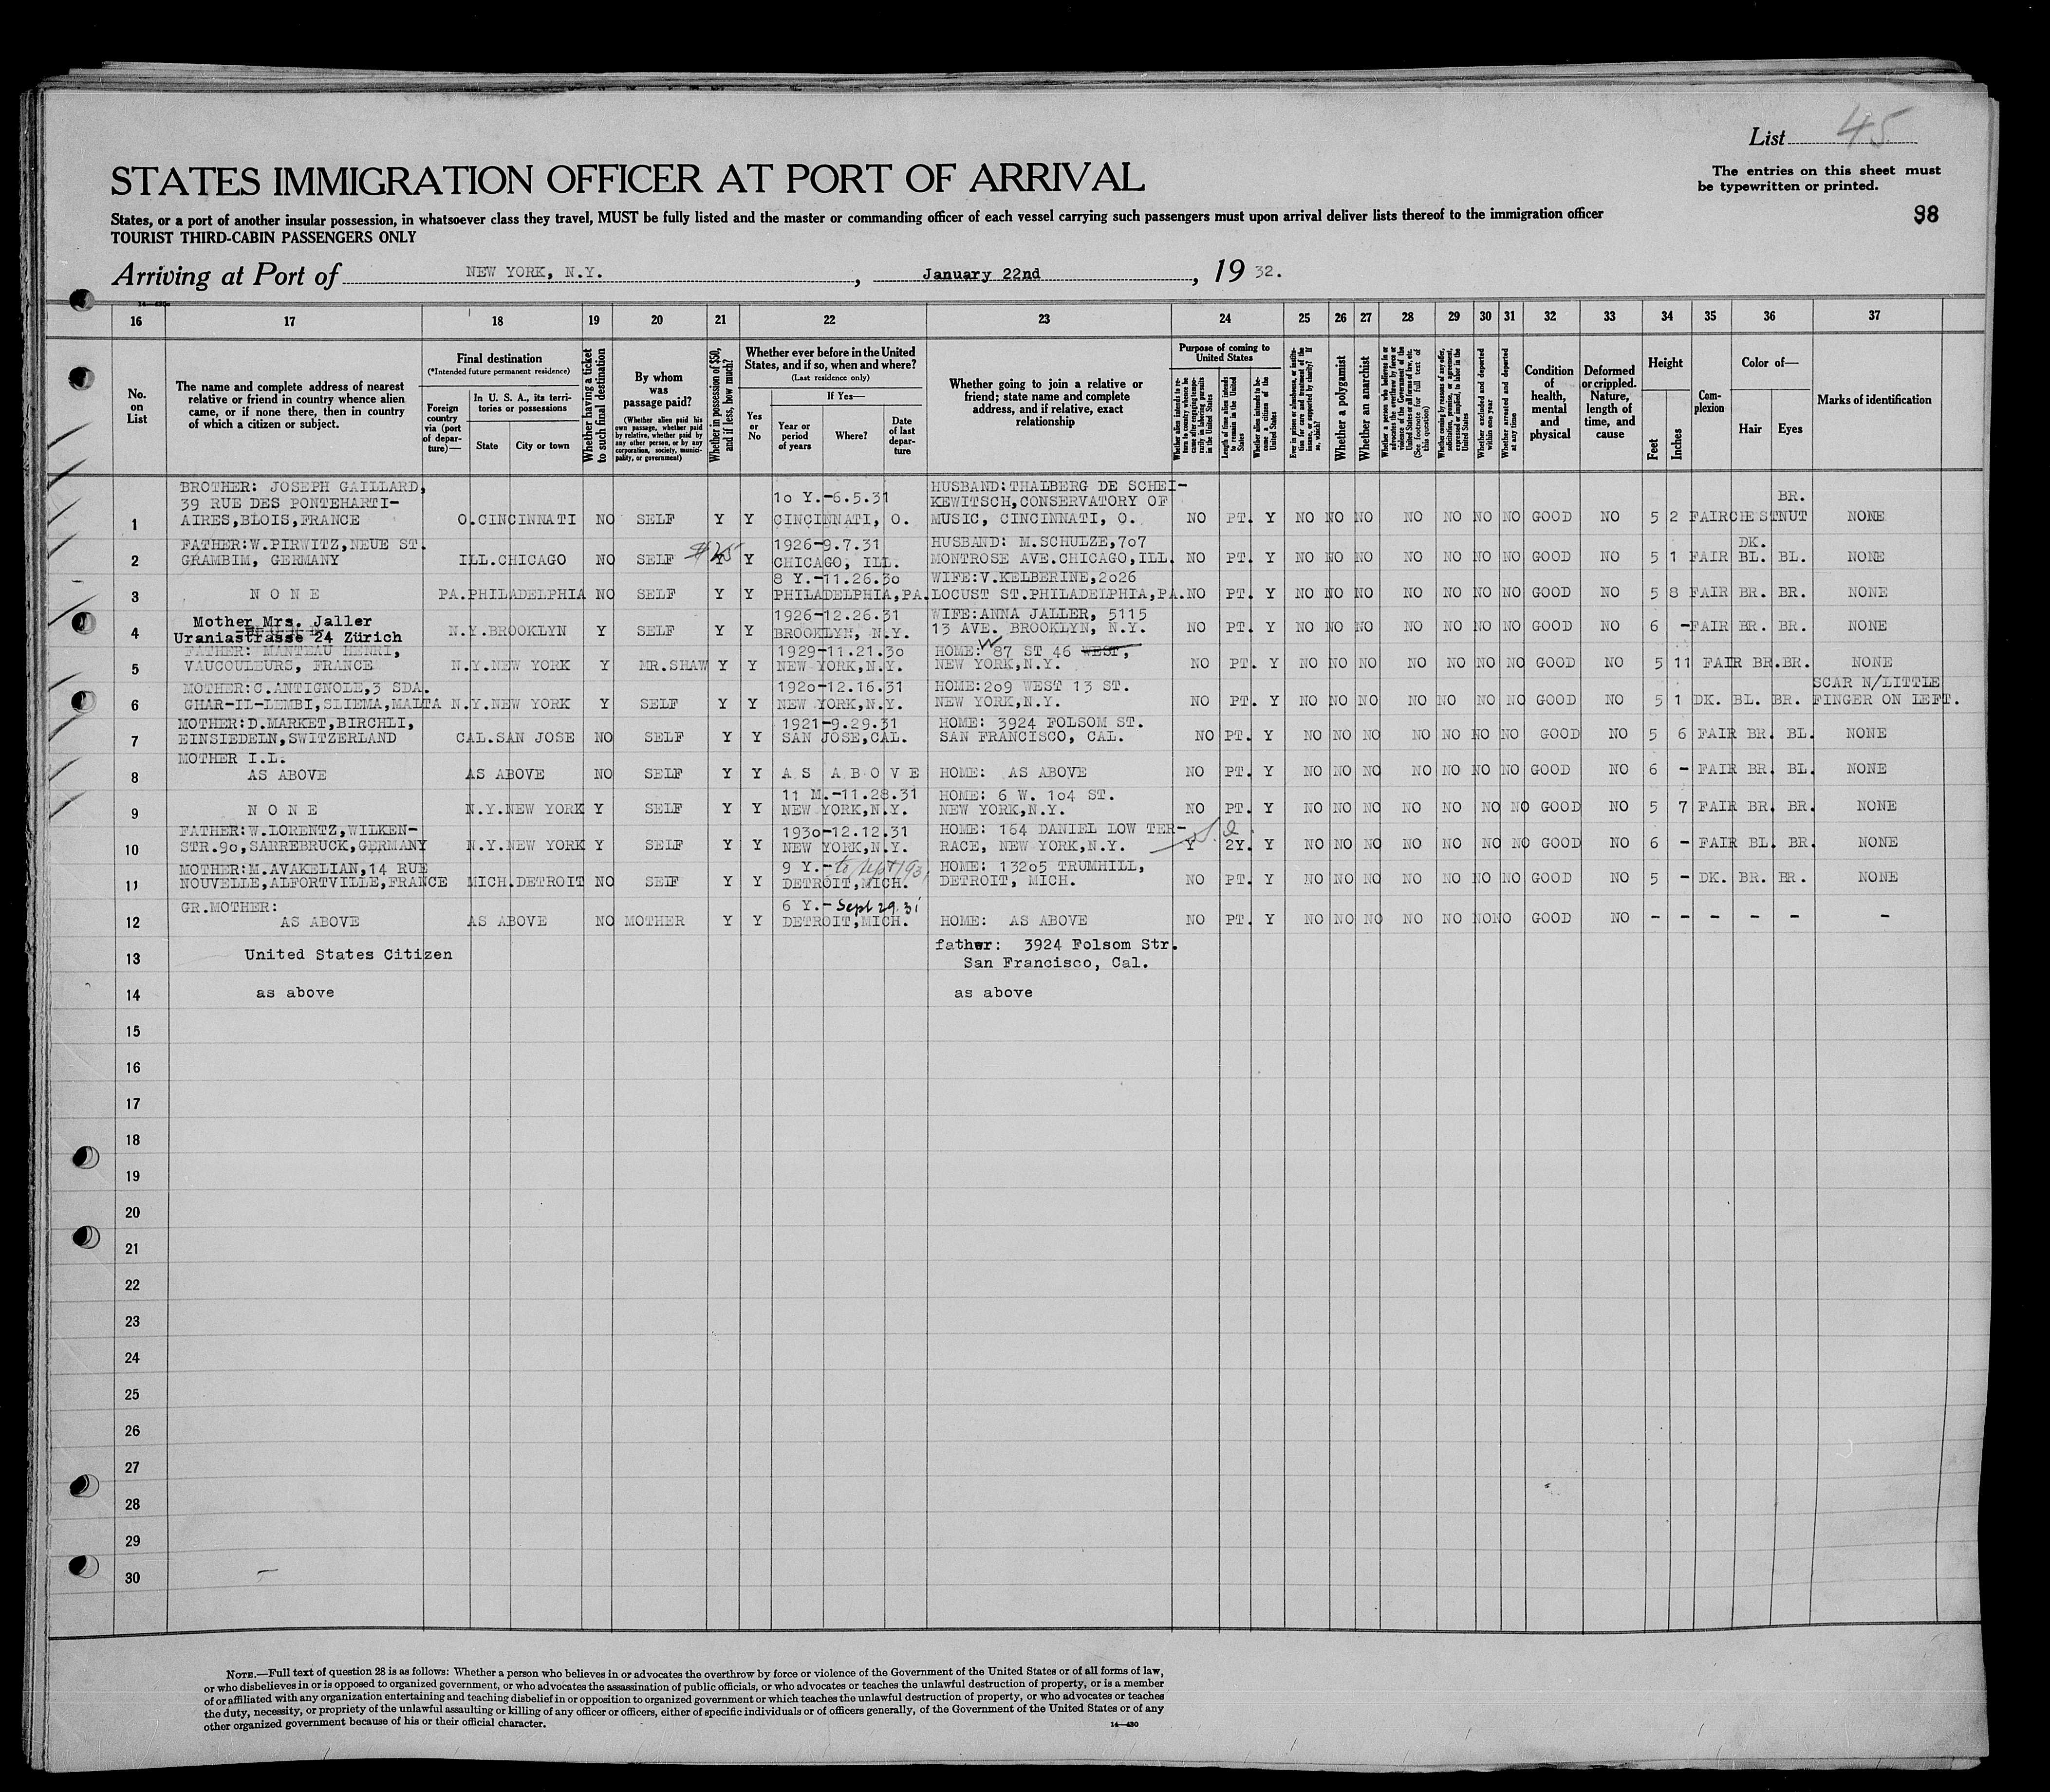 List 45
The entries on this sheet must
be typewritten or printed.
98
STATES IMMIGRATION OFFICER AT PORT OF ARRIVAL
States, or a port of another insular possession, in whatsoever class they travel, MUST be fully listed and the master or commanding officer of each vessel carrying such passengers must upon arrival deliver lists thereof to the immigration officer
TOURIST THIRD-CABIN PASSENGERS ONLY
Arriving at Port of NEW YORK, N.Y. , January 22nd , 19 32.
16 17 18 19 20 21 22 23 24 25 26 27 28 29 30 31 32 33 34 35 36 37
No. on List
The name and complete address of nearest
relative or friend in country whence alien
came, or if none there, then in country
of which a citizen or subject.
Final destination
(*Intended future permanent residence)
Foreign country via (port of departure)—
In U. S. A., its territories or possessions
State
City or town
Whether having a ticket to such final destination
By whom was passage paid?
(Whether alien paid his own passage, whether paid by relative, whether paid by any other person, or by any corporation, society, municipality, or government)
Whether in possession of $50, and if less, how much?
Whether ever before in the United States, and if so, when and where?
(Last residence only)
Yes or No
If Yes—
Year or period of years
Where?
Date of last departure
Whether going to join a relative or
friend; state name and complete
address, and if relative, exact
relationship
Purpose of coming to United States
Length of time alien intends to remain in the United States
Whether alien intends to become a citizen of the United States
Whether a polygamist
Whether an anarchist
Whether excluded and deported within one year
Whether arrested and deported at any time
Condition of health, mental and physical
Deformed or crippled. Nature, length of time, and cause
Height
Feet
Inches
Complexion
Color of—
Hair
Eyes
Marks of identification
BROTHER: JOSEPH GAILLARD, HUSBAND:THALBERG DE SCHEI-
39 RUE DES PONTEHARTI- 10 Y.-6.5.31 KEWITSCH,CONSERVATORY OF BR.
1 AIRES,BLOIS,FRANCE O.CINCINNATI NO SELF Y Y CINCINNATI, O. MUSIC, CINCINNATI, O. NO PT. Y NO NO NO NO NO NO NO GOOD NO 5 2 FAIR CHESTNUT NONE
FATHER:W.PIRWITZ,NEUE ST. 1926-9.7.31 HUSBAND: M.SCHULZE,707 DK.
2 GRAMBIM, GERMANY ILL.CHICAGO NO SELF Y Y CHICAGO, ILL. MONTROSE AVE.CHICAGO,ILL. NO PT. Y NO NO NO NO NO NO NO GOOD NO 5 1 FAIR BL. BL. NONE
8 Y.-11.26.30 WIFE:V.KELBERINE,2026
3 NONE PA.PHILADELPHIA NO SELF Y Y PHILADELPHIA,PA. LOCUST ST.PHILADELPHIA,PA. NO PT. Y NO NO NO NO NO NO NO GOOD NO 5 8 FAIR BR. BR. NONE
Mother Mrs. Jaller 1926-12.26.31 WIFE:ANNA JALLER, 5115
4 Uraniastrasse 24 Zürich N.Y.BROOKLYN Y SELF Y Y BROOKLYN, N.Y. 13 AVE. BROOKLYN, N.Y. NO PT. Y NO NO NO NO NO NO NO GOOD NO 6 - FAIR BR. BR. NONE
FATHER: MANTEAU HENRI, 1929-11.21.30 HOME: W 87 ST 46 WEST,
5 VAUCOULEURS, FRANCE N.Y.NEW YORK Y MR.SHAW Y Y NEW YORK,N.Y. NEW YORK,N.Y. NO PT. Y NO NO NO NO NO NO NO GOOD NO 5 11 FAIR BR. BR. NONE
MOTHER:C.ANTIGNOLE,3 SDA. 1920-12.16.31 HOME:209 WEST 13 ST. SCAR N/LITTLE
6 GHAR-IL-LEMBI,SLIEMA,MALTA N.Y.NEW YORK Y SELF Y Y NEW YORK,N.Y. NEW YORK,N.Y. NO PT. Y NO NO NO NO NO NO NO GOOD NO 5 1 DK. BL. BR. FINGER ON LEFT.
MOTHER:D.MARKET,BIRCHLI, 1921-9.29.31 HOME: 3924 FOLSOM ST.
7 EINSIEDELN,SWITZERLAND CAL.SAN JOSE NO SELF Y Y SAN JOSE,CAL. SAN FRANCISCO, CAL. NO PT. Y NO NO NO NO NO NO NO GOOD NO 5 6 FAIR BR. BL. NONE
MOTHER I.L.
8 AS ABOVE AS ABOVE NO SELF Y Y AS ABOVE HOME: AS ABOVE NO PT. Y NO NO NO NO NO NO NO GOOD NO 6 - FAIR BR. BL. NONE
11 M.-11.28.31 HOME: 6 W. 104 ST.
9 NONE N.Y.NEW YORK Y SELF Y Y NEW YORK,N.Y. NEW YORK,N.Y. NO PT. Y NO NO NO NO NO NO NO GOOD NO 5 7 FAIR BR. BR. NONE
FATHER:W.LORENTZ,WILKEN- 1930-12.12.31 HOME: 164 DANIEL LOW TER-
10 STR.90,SARREBRUCK,GERMANY N.Y.NEW YORK Y SELF Y Y NEW YORK,N.Y. RACE, NEW YORK,N.Y. Y 2Y. Y NO NO NO NO NO NO NO GOOD NO 6 - FAIR BL. BR. NONE
MOTHER:M.AVAKELIAN,14 RUE 9 Y.- to Sept 1931 HOME: 13205 TRUMHILL,
11 NOUVELLE,ALFORTVILLE,FRANCE MICH.DETROIT NO SELF Y Y DETROIT,MICH. DETROIT, MICH. NO PT. Y NO NO NO NO NO NO NO GOOD NO 5 - DK. BR. BR. NONE
GR.MOTHER: 6 Y.- Sept 29.31
12 AS ABOVE AS ABOVE NO MOTHER Y Y DETROIT,MICH. HOME: AS ABOVE NO PT. Y NO NO NO NO NO NO NO GOOD NO - - - - - -
father: 3924 Folsom Str.
13 United States Citizen San Francisco, Cal.
14 as above as above
15
16
17
18
19
20
21
22
23
24
25
26
27
28
29
30
NOTE.—Full text of question 28 is as follows: Whether a person who believes in or advocates the overthrow by force or violence of the Government of the United States or of all forms of law,
or who disbelieves in or is opposed to organized government, or who advocates the assassination of public officials, or who advocates or teaches the unlawful destruction of property, or is a member
of or affiliated with any organization entertaining and teaching disbelief in or opposition to organized government or which teaches the unlawful destruction of property, or who advocates or teaches
the duty, necessity, or propriety of the unlawful assaulting or killing of any officer or officers, either of specific individuals or of officers generally, of the Government of the United States or of any
other organized government because of his or their official character.
14—430